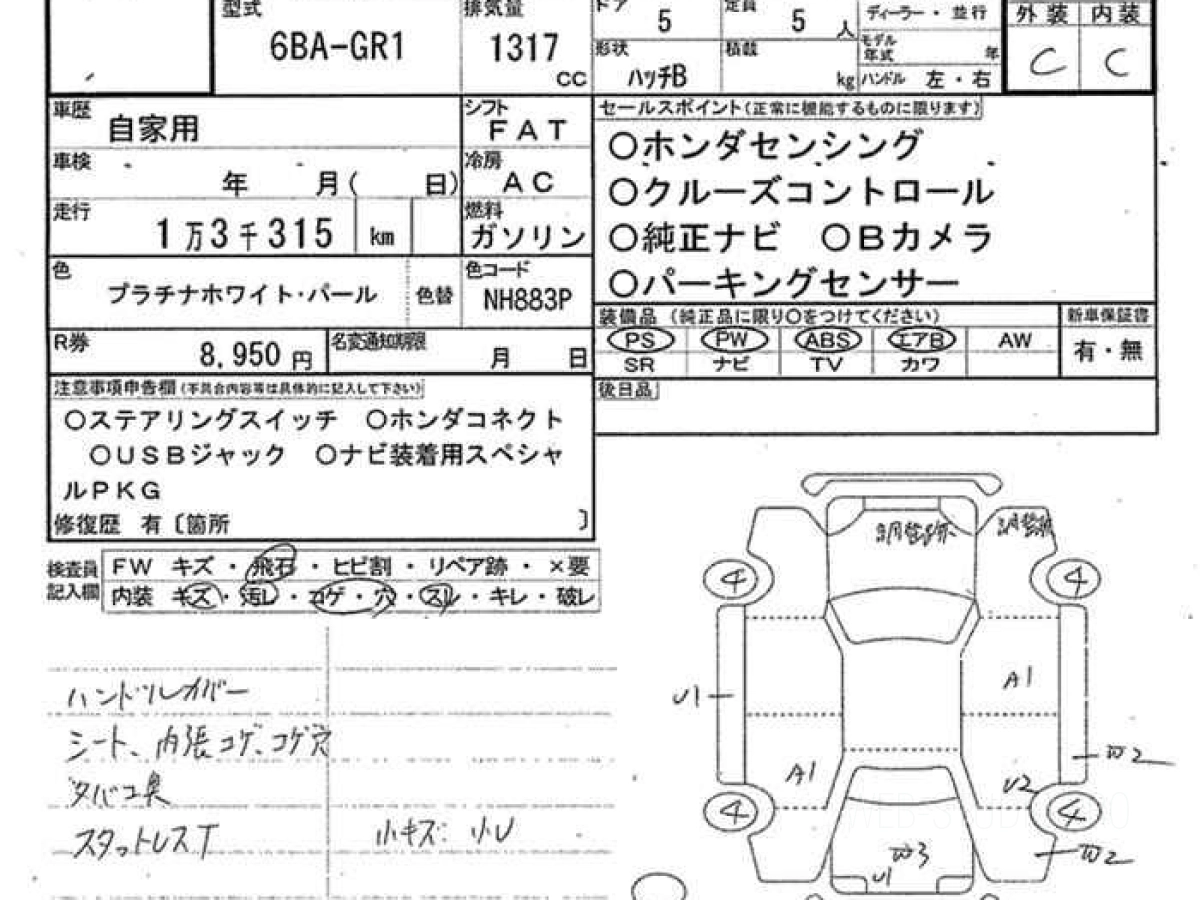 型式 排気量 ドア 5 定員 5 人 ディーラー・並行 外装 内装
6BA-GR1 1317 CC 形状 ハッチB 積載 kg モデル年式 年 C C
ハンドル 左・右
車歴 自家用 シフト FAT セールスポイント(正常に機能するものに限ります)
○ホンダセンシング
車検 年 月( 日) 冷房 AC ○クルーズコントロール
走行 1万3千315 km 燃料 ガソリン ○純正ナビ ○Bカメラ
色 プラチナホワイト・パール 色替 色コード NH883P ○パーキングセンサー
装備品(純正品に限り○をつけてください) 新車保証書
PS PW ABS エアB AW 有・無
SR ナビ TV カワ
R券 8,950 円 名変通知期限 月 日
後日品
注意事項申告欄(不具合内容等は具体的に記入して下さい)
○ステアリングスイッチ ○ホンダコネクト
○USBジャック ○ナビ装着用スペシャ
ルPKG
修復歴 有〔箇所 〕
検査員記入欄 FW キズ・飛石・ヒビ割・リペア跡・×要
内装 キズ・汚レ・コゲ・穴・スレ・キレ・破レ
ハンドルカバー
シート、内張コゲ、コゲ穴
タバコ臭
スタットレスT 小キズ 小U
調整跡 調整跡
4 4
U1 A1
A1 W2
U2
4 4
W3 W2
U1